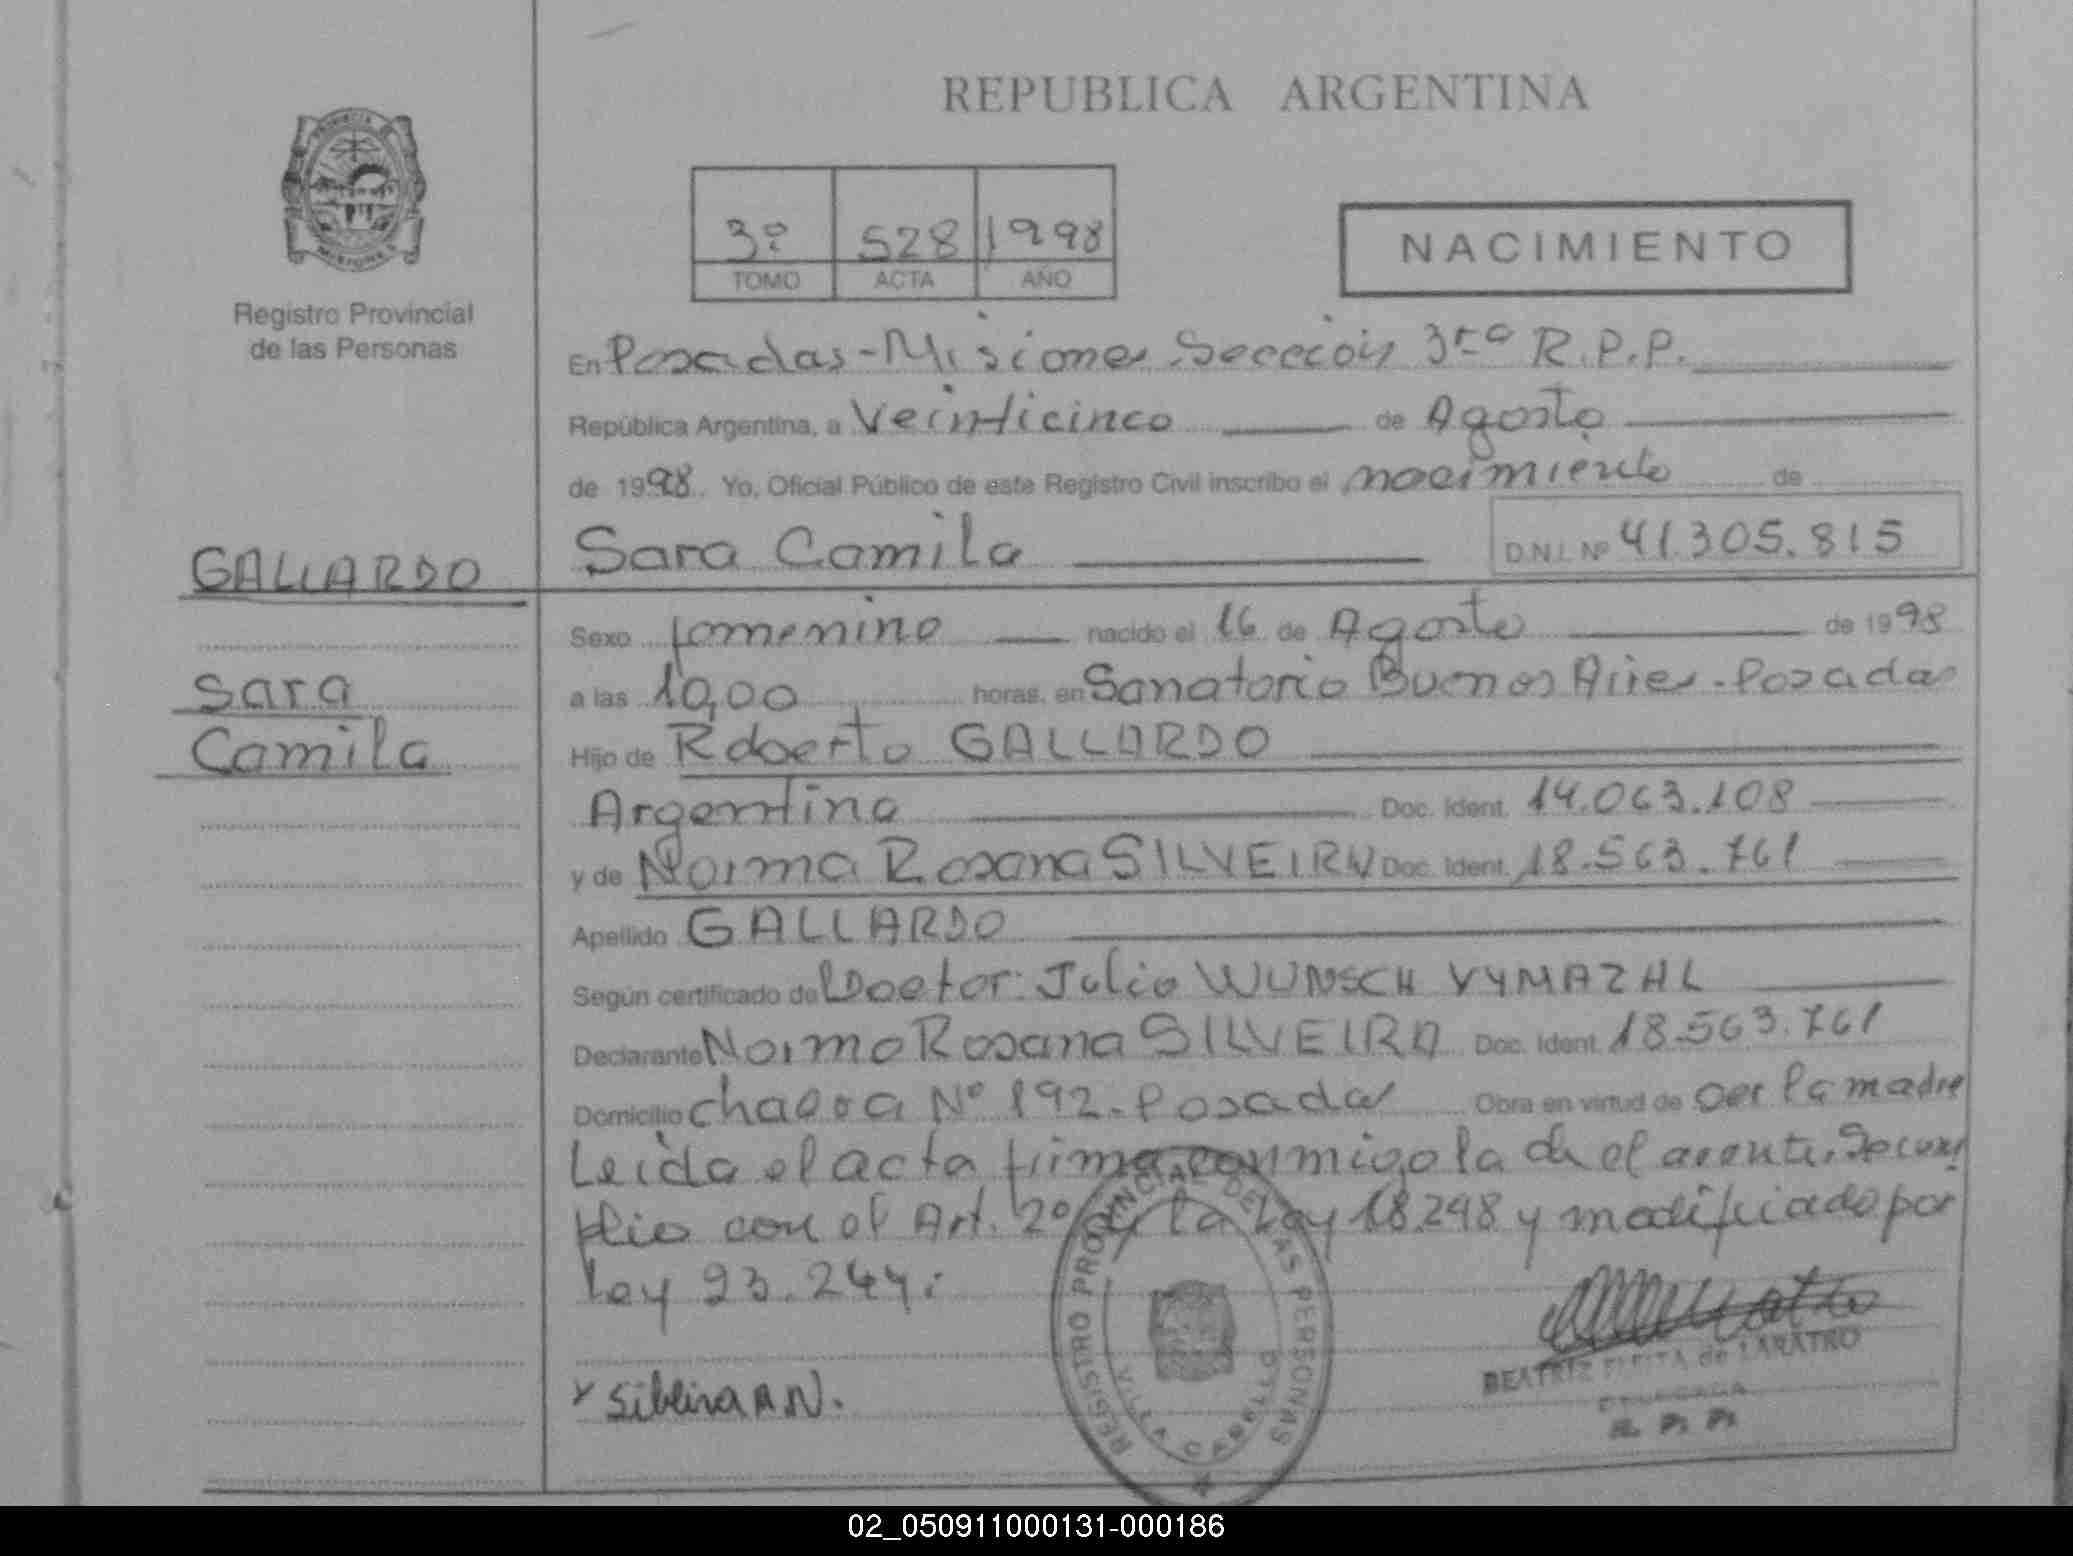 REPUBLICA ARGENTINA
3º 528 1998
TOMO ACTA AÑO
NACIMIENTO
Registro Provincial
de las Personas
En Posadas - Misiones Sección 3ra R.P.P.
República Argentina, a Veinticinco de Agosto
de 1998. Yo, Oficial Público de este Registro Civil inscribo el nacimiento de
GALLARDO
Sara Camila D.N.I. Nº 41.305.815
Sexo femenino nacido el 16 de Agosto de 1998
Sara
Camila
a las 10,00 horas, en Sanatorio Buenos Aires - Posadas
Hijo de Roberto GALLARDO
Argentina Doc. Ident. 14.063.108
y de Norma Rosana SILVEIRA Doc. Ident. 18.563.761
Apellido GALLARDO
Según certificado de Doctor: Julio WUNSCH VYMAZAL
Declarante Norma Rosana SILVEIRA Doc. Ident. 18.563.761
Domicilio chacra Nº 192 - Posadas Obra en virtud de ser la madre
Leida el acta firma conmigo la de el
plio con el Art. 2º la Ley 18.248 y modificado por
Ley 23.244:
REGISTRO PROVINCIAL DE LAS PERSONAS
VILLA CABELLO
BEATRIZ de LARATRO
DELEGADA
R. P. P.
02_050911000131-000186